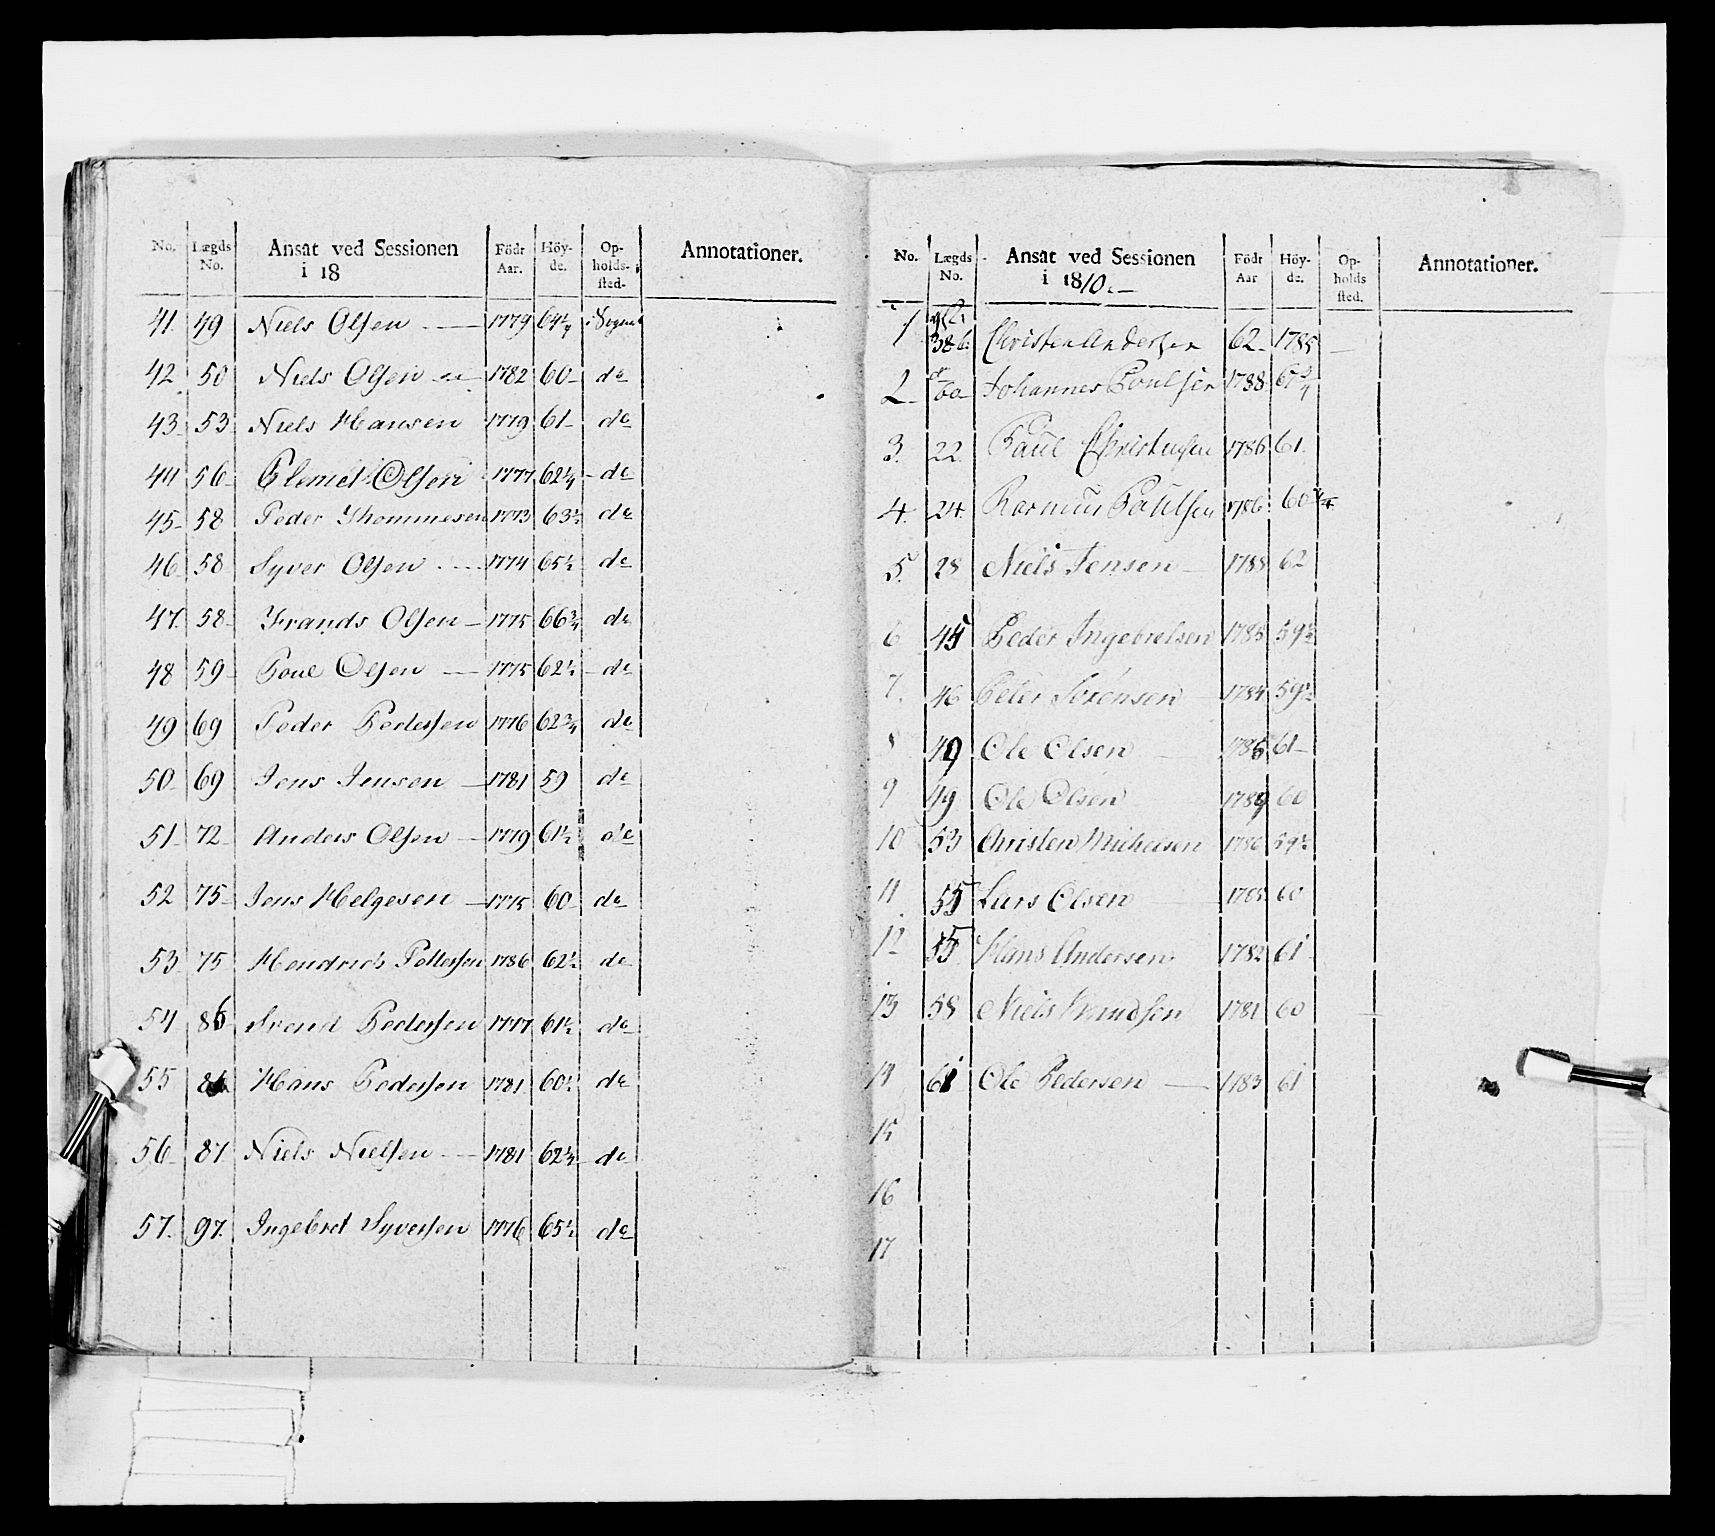 No. Lægds No. Ansat ved Sessionen i 18 Födt Aar. Höy- de. Op- holds- sted. Annotationer.
41. 49 Niels Olsen 1779 64¼
42 50 Niels Olsen 1782 60 do
43 53 Niels Hansen 1779 61 do
44 56 Clemet Olsen 1777 62¼ do
45 58 Peder Thommesen 1773 63½ do
46 58 Syver Olsen 1774 65½ do
47 58 Frands Olsen 1775 66¾ do
48 59 Poul Olsen 1775 62½ do
49 69 Peder Pedersen 1776 62¾ do
50 69 Jens Jensen 1781 59 do
51 72 Anders Olsen 1779 61½ do
52 75 Jens Helgesen 1775 60 do
53 75 Hendrich Pettersen 1786 62½ do
54 86 Svend Pedersen 1777 61½ do
55 86 Hans Pedersen 1781 60½ do
56 87 Niels Nielsen 1781 62¼ do
57. 97. Ingebret Syversen 1776 65½ do
No. Lægds No. Ansat ved Sessionen i 1810. Födt Aar Höy- de. Op- holds sted. Annotationer.
1 386 Christen Andersen 62 1785
2 60 Johannes Poulsen 1788 61¾
3. 22 Paul Christensen 1786 61.
4. 24. Rasmus Paulsen 1786 60¼
5. 28 Niels Jensen 1788 62
6 45 Peder Ingebretsen 1785 59½
7. 46 Peter Sörensen 1784 59½
8 49 Ole Olsen 1786 61
9 49 Ole Olsen 1789 60
10 53 Christen Michelsen 1786 59½
11 55 Lars Olsen 1785 60
12 55 Hans Andersen 1782 61
13 58 Niels Knudsen 1781 60
14 61 Ole Pedersen 1783 61
15
16
17